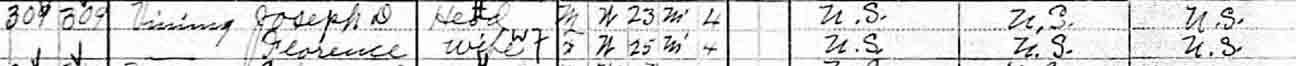 309 309 Vining Joseph D Head M W 23 M 4 U.S. U.S. U.S.
Florence Wife F W 25 M 4 U.S. U.S. U.S.